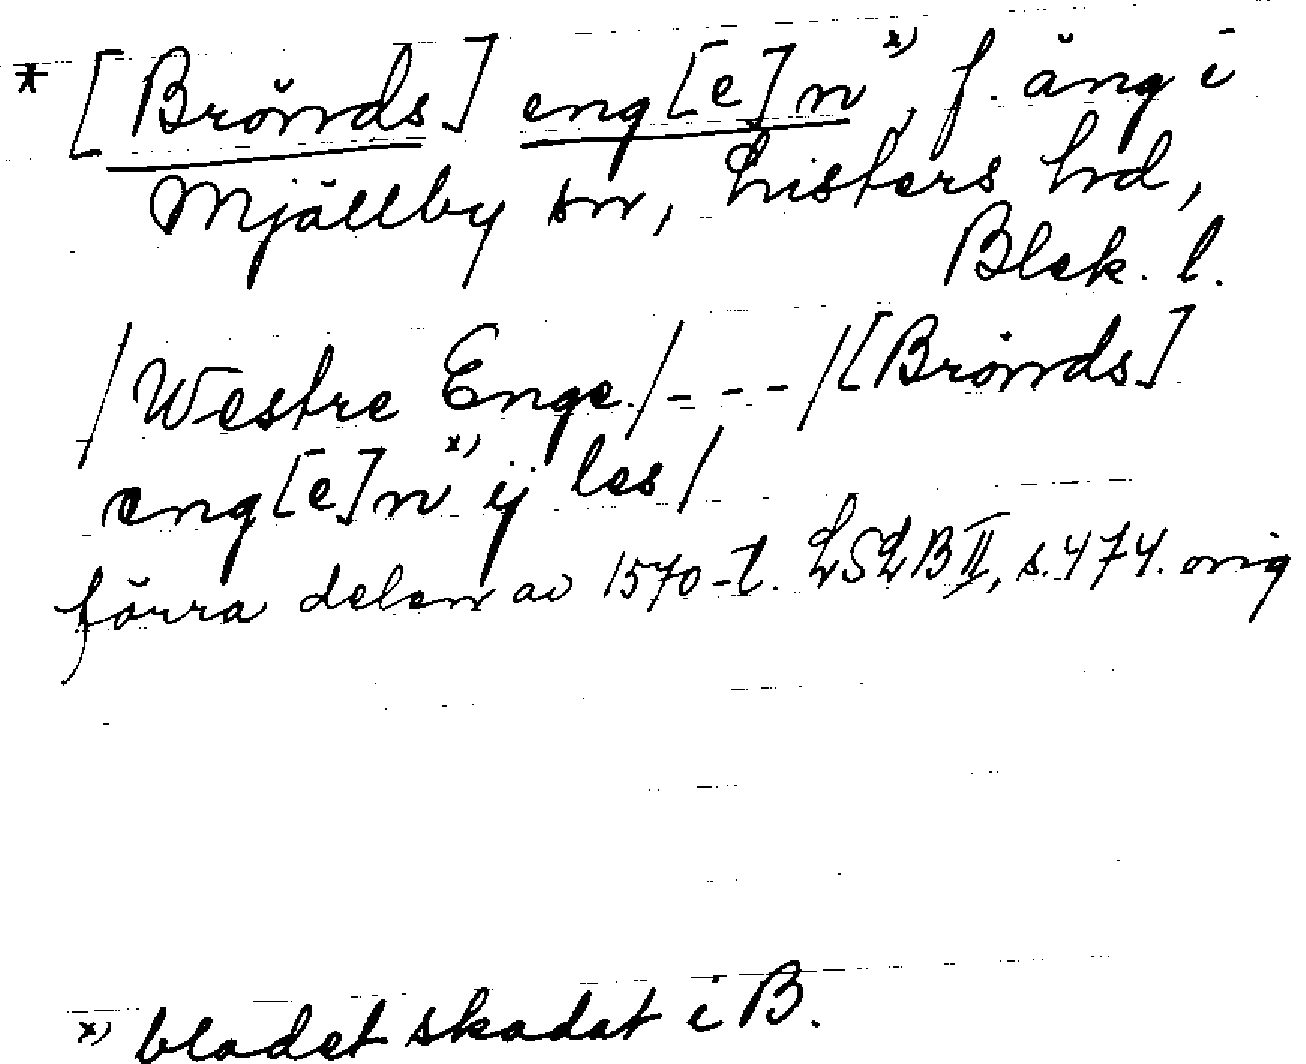 * [Brönds] eng[e]n x), f. äng i
Mjällby sn, Listers hd,
Blek. l.
/Westre Enge/ - - - /[Brönds]
eng[e]n x) ij les/
förra delen av 1570-t. LSLB II, s. 474. orig
x) bladet skadat i B.